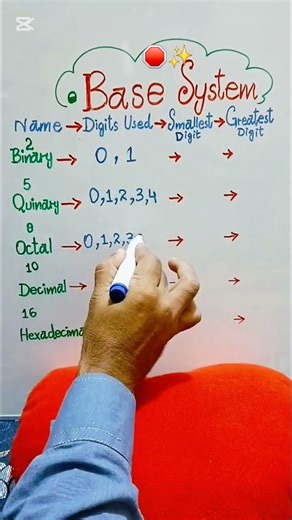 CapCut
Base System
Name → Digits Used → Smallest Digit → Greatest Digit
2
Binary → 0, 1 → →
5
Quinary → 0,1,2,3,4 → →
8
Octal → 0,1,2,3 → →
10
Decimal → → →
16
Hexadecima →